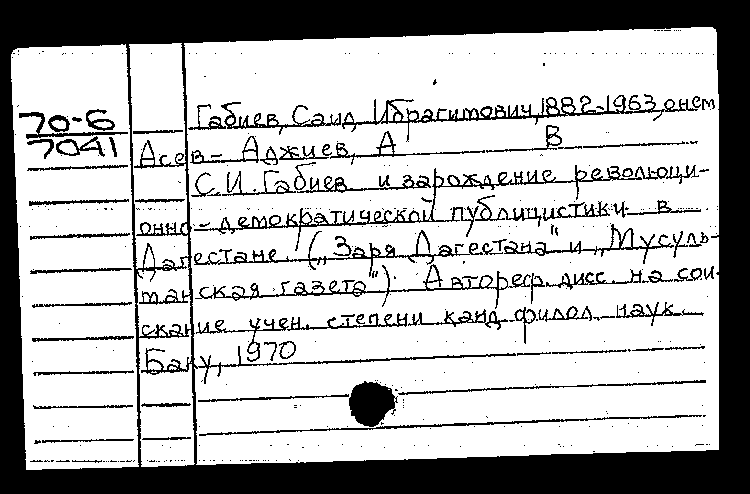 70-Б
7041
Габиев, Саид Ибрагимович, 1882-1963, о нем
Асев-Аджиев, А В
С.И. Габиев и зарождение революци-
онно-демократической публицистики в
Дагестане. („Заря Дагестана" и „Мусуль-
манская газета"). Автореф. дисс. на сои-
скание учен. степени канд. филол. наук.
Баку, 1970